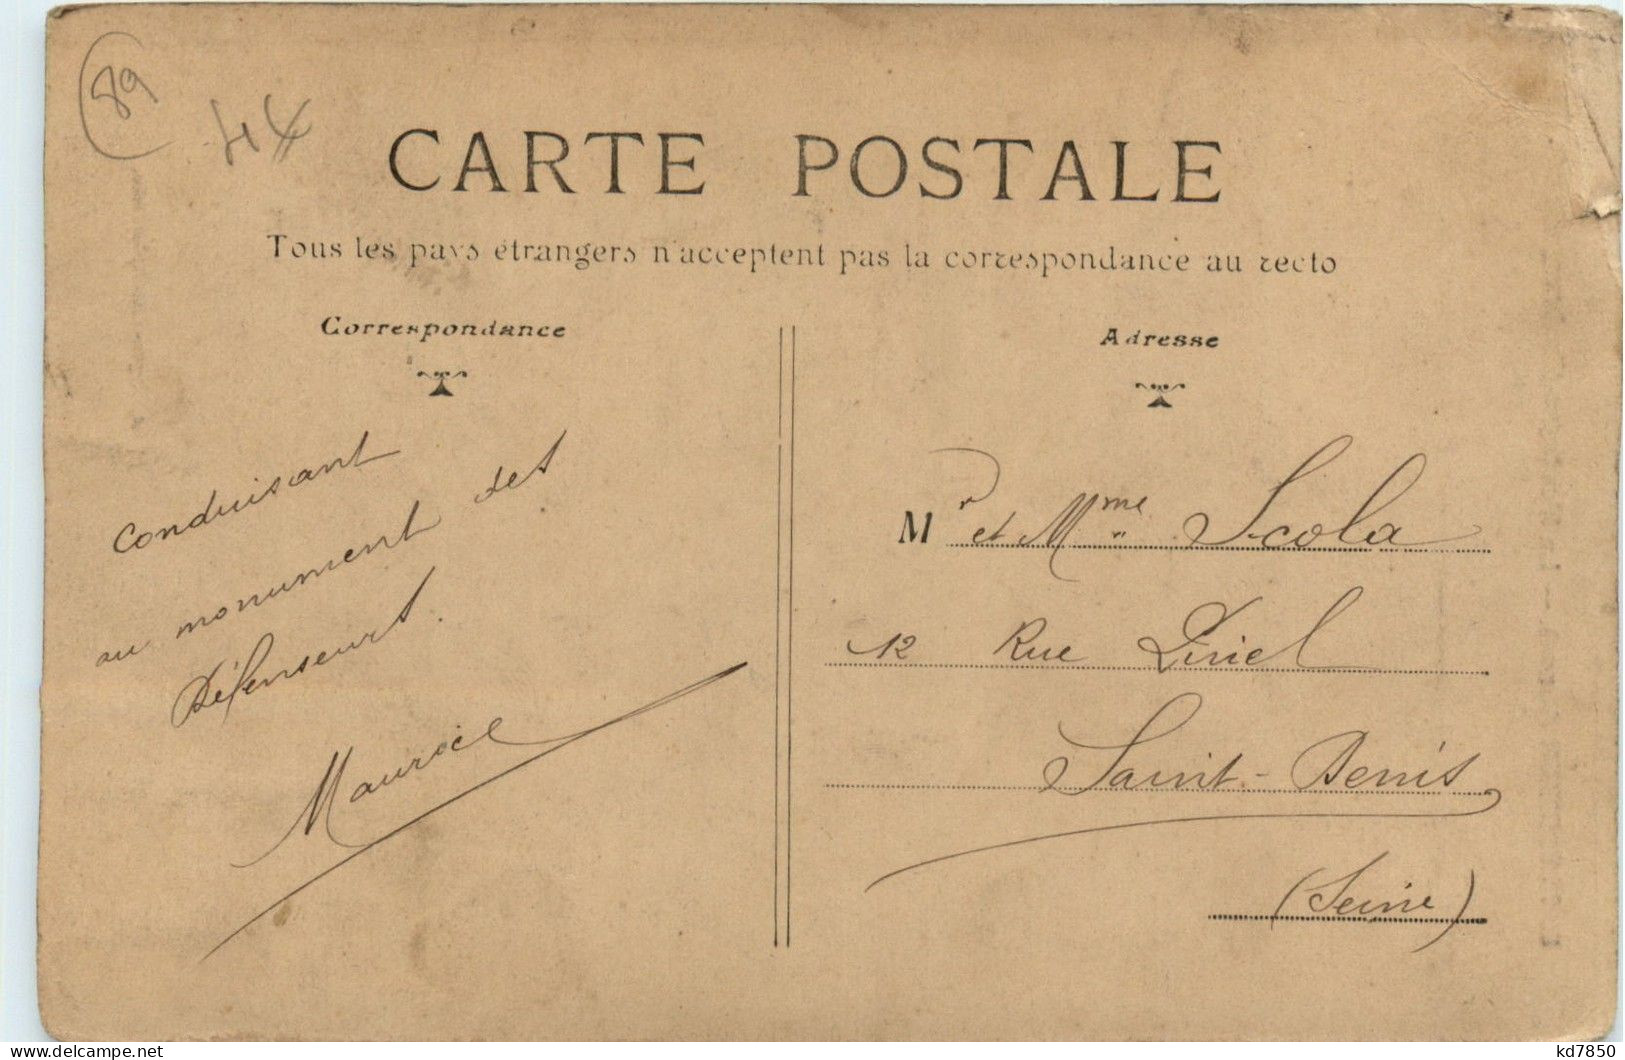 89
4x
CARTE POSTALE
Tous les pays étrangers n'acceptent pas la correspondance au recto
Correspondance
conduisant
au monument des
Défenseurs.
Maurice
Adresse
Mr et Mme Scola
12 Rue Pinel
Saint-Denis
(Seine)
kd7850